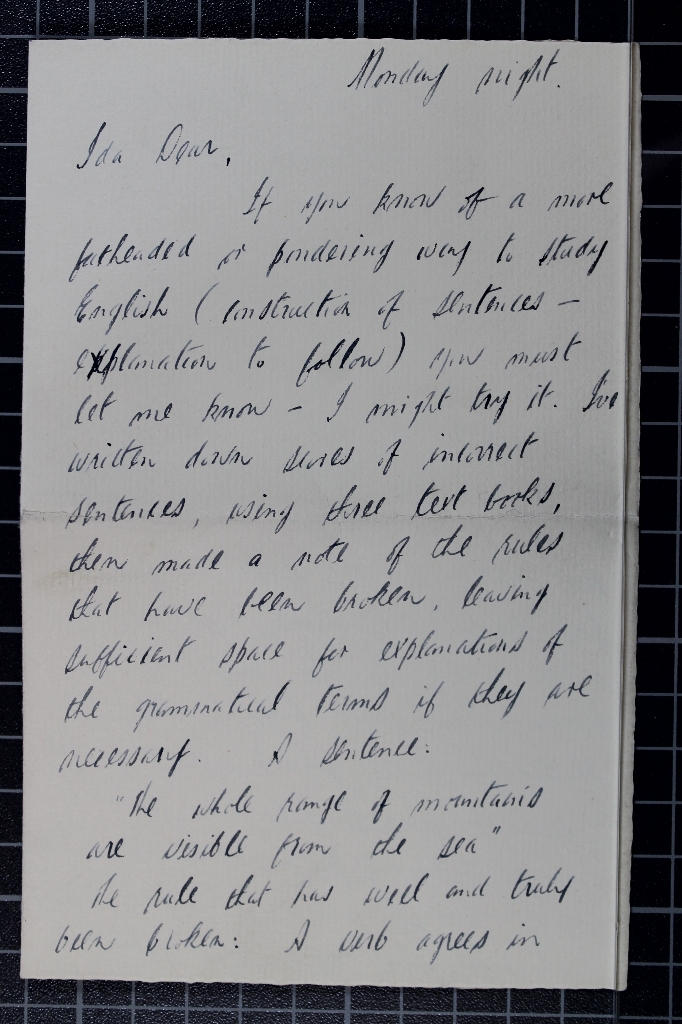 Monday night.
Ida Dear,
If you know of a more
fatheaded or pondering way to study
English (construction of sentences –
explanation to follow) you must
let me know – I might try it. I've
written down scores of incorrect
sentences, using three text books,
then made a note of the rules
that have been broken, leaving
sufficient space for explanations of
the grammatical terms if they are
necessary. A sentence:
"The whole range of mountains
are visible from the sea"
The rule that has well and truly
been broken: A verb agrees in